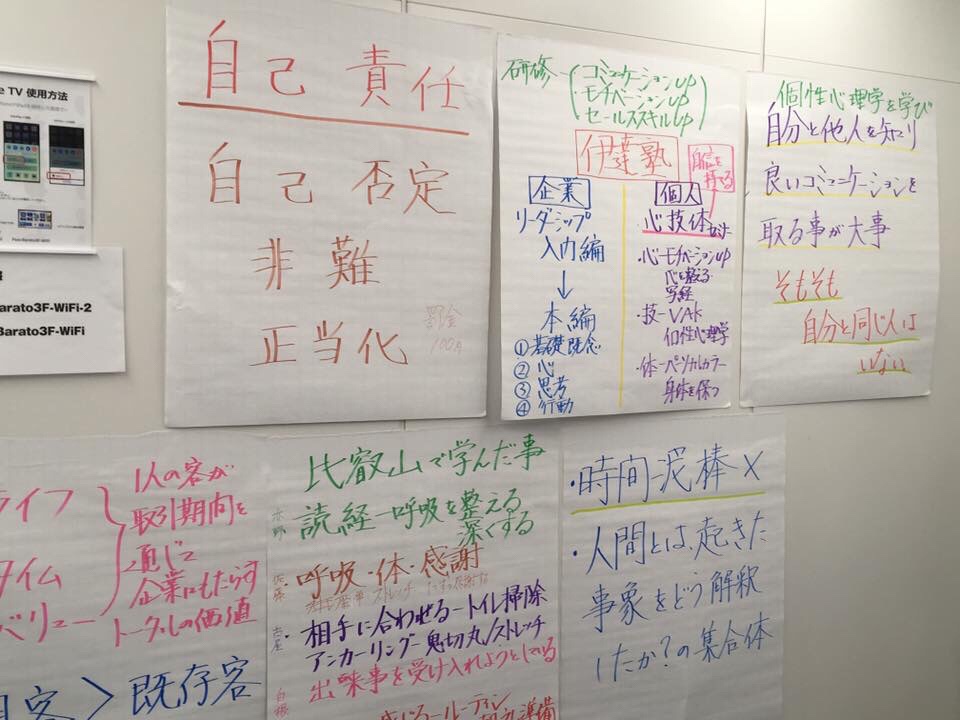 TV 使用方法
Barato3F-WiFi-2
Barato3F-WiFi
自己 責任
自己 否定
非難
正当化
罰金
100円
研修
コミュニケーションup
・モチベーションup
セールススキルup
伊達塾
自信を
持てる
企業
リーダシップ
入内編
↓
本編
①基礎既念
②心
③思考
④行動
個人
心技体
・心-モチベーションup
心を整える
写経
・技-VAK
個性心理学
・体-パーソナルカラー
身体を保つ
個性心理学を学び
自分と他人を知り
良いコミュニケーションを
取る事が大事
そもそも
自分と同じ人は
いない
ライフ
タイム
バリュー
1人の客が
取引期間を
通じて
企業にもたらす
トータルの価値
客>既存客
比叡山で学んだ事
読経-呼吸を整える
深くする
・呼吸・体・感謝
ストレッチ
相手に合わせる-トイレ掃除
アンカーリング-鬼切丸/ストレッチ
出来事を受け入れようとしている
ルーティン
準備
・時間-泥棒×
・人間とは、起きた
事象をどう解釈
したか?の集合体